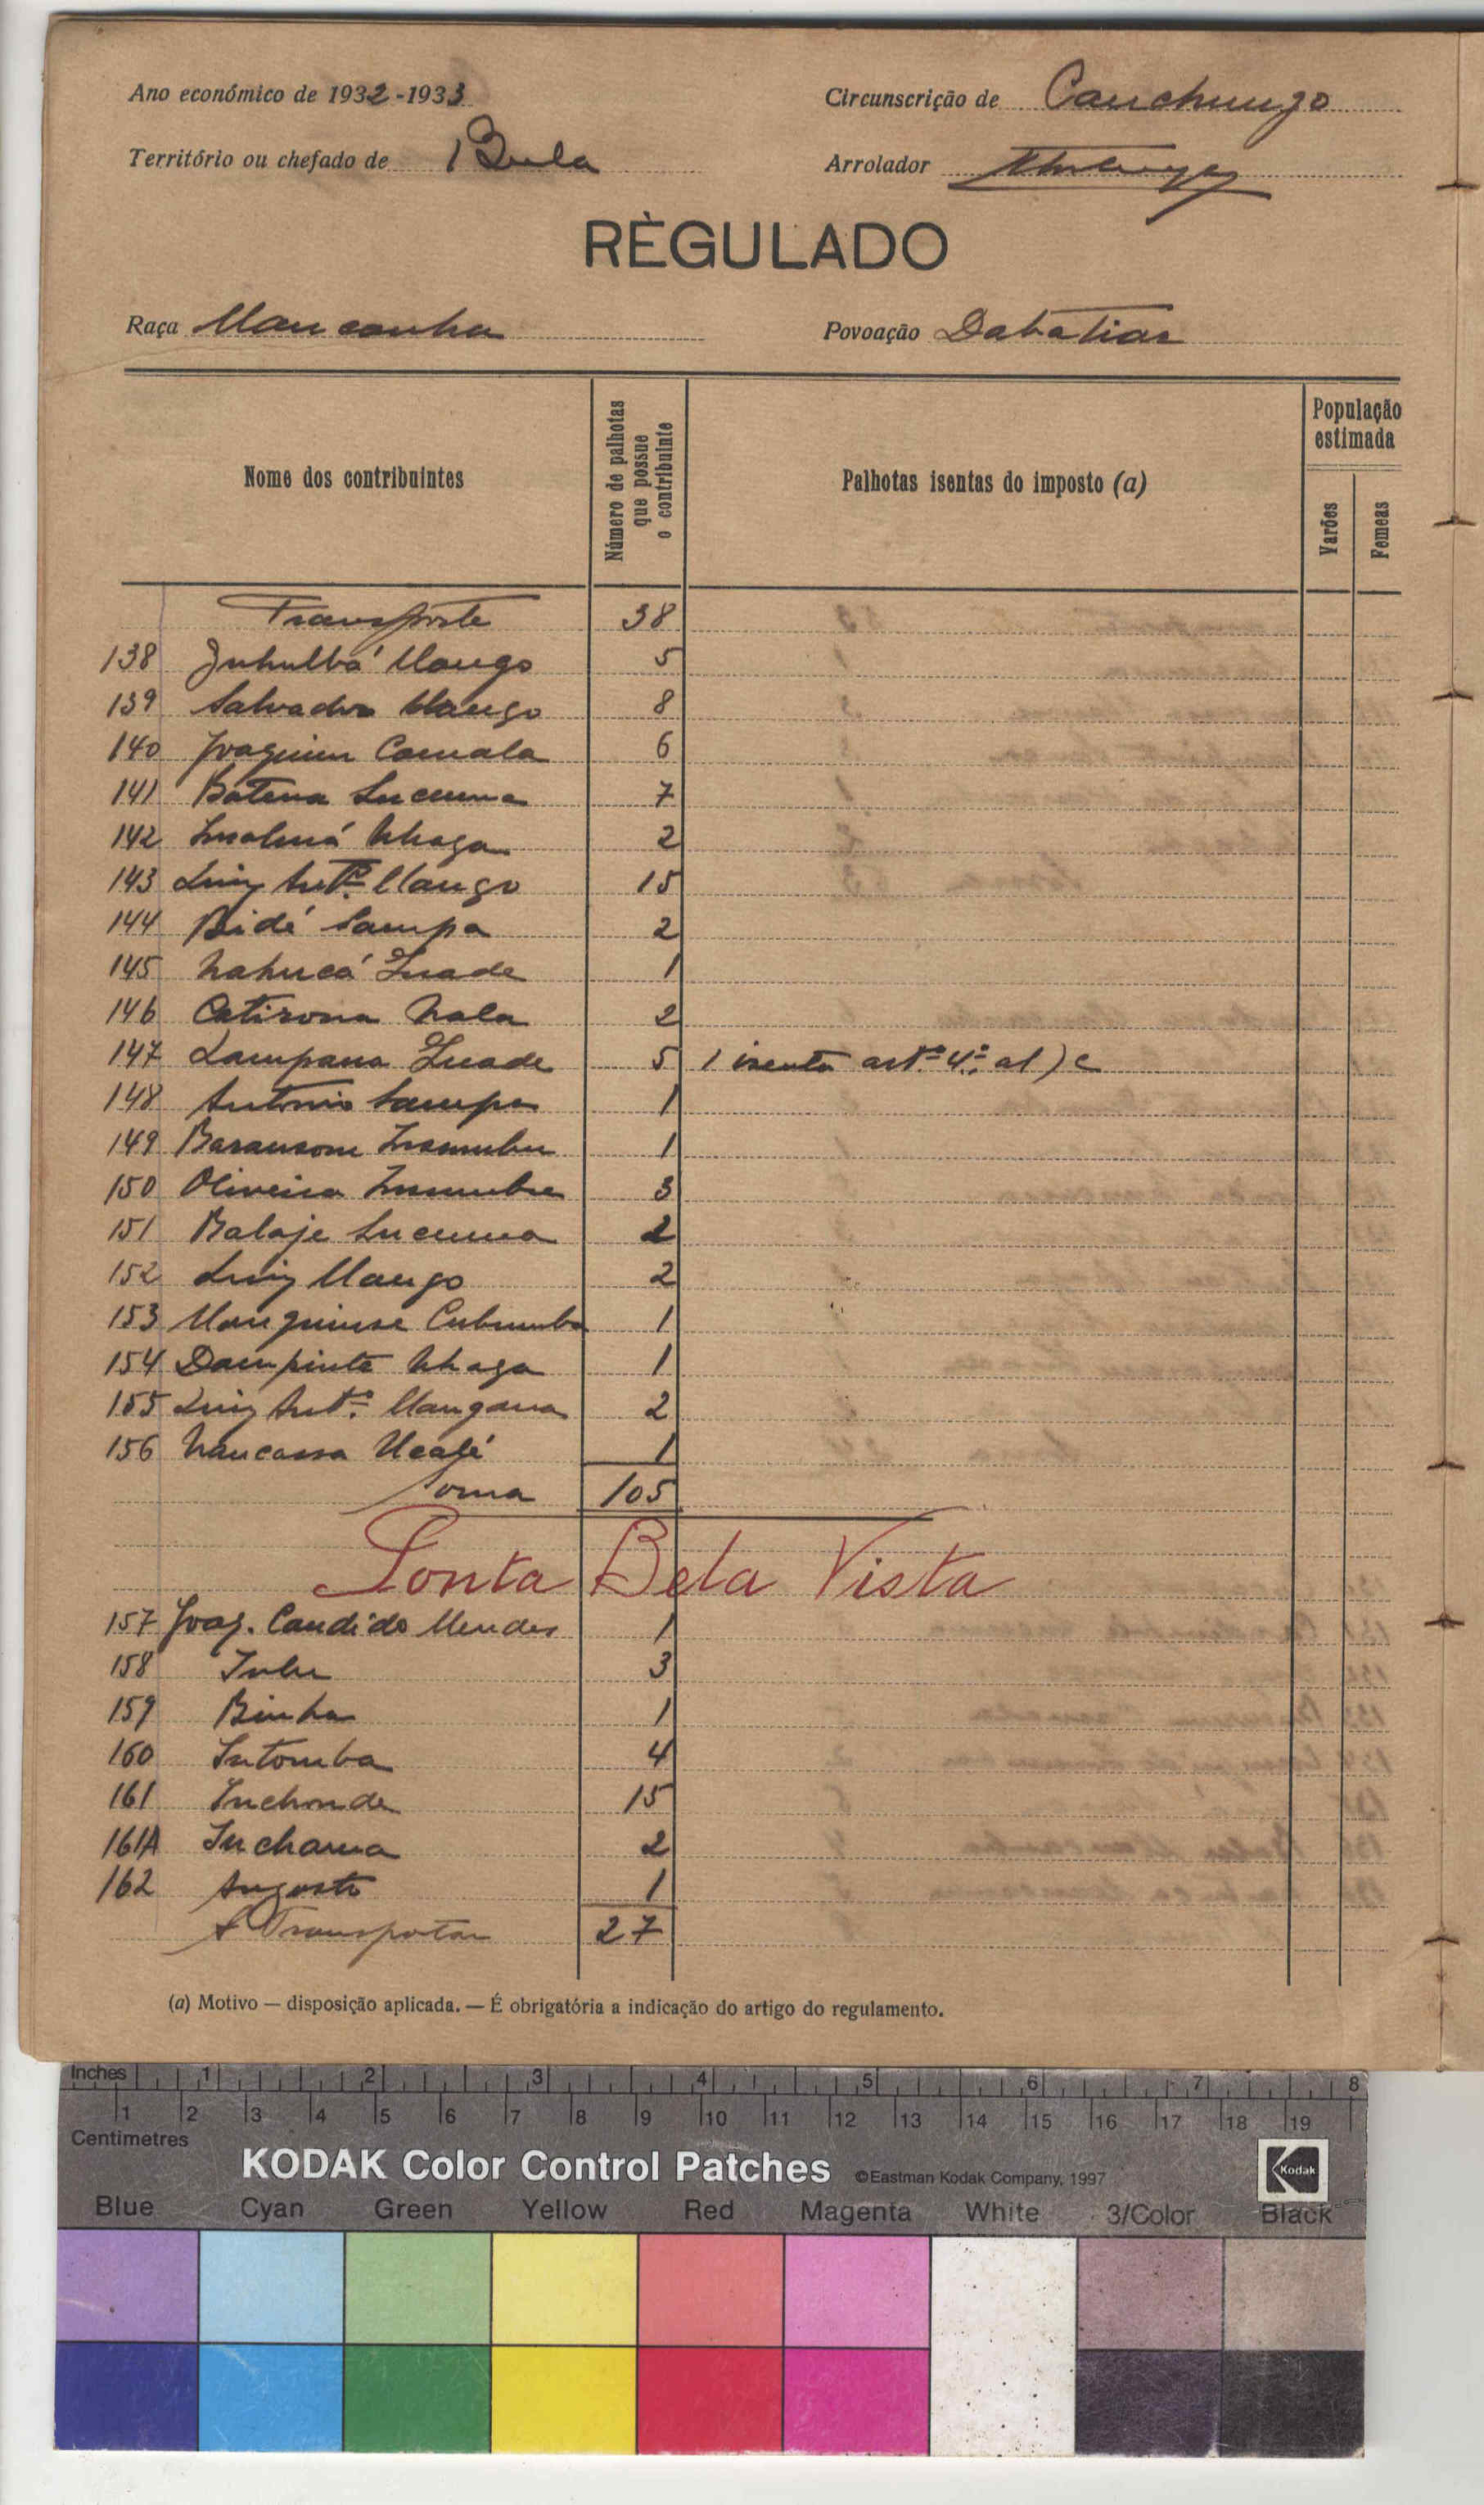 Ano económico de 1932-1933
Circunscrição de Canchungo
Território ou chefado de Bula
Arrolador
RÈGULADO
Raça Mancanha
Povoação Dabatiar
Nome dos contribuintes
Número de palhotas que possue o contribuinte
Palhotas isentas do imposto (a)
População estimada
Varões
Femeas
Transporte 38
138 Mango 5
139 Salvador Mango 8
140 Joaquim Camala 6
141 Batena Lucuma 7
142 2
143 Luiz Antº. Mango 15
144 Bidé Sampa 2
145 1
146 Catirona Nala 2
147 Lampana 5 1 isenta artº 4º. al) c
148 Antonio Sampa 1
149 1
150 Oliveira 3
151 Balaje Lucuma 2
152 Luiz Mango 2
153 1
154 Dampinte 1
155 Luiz Antº. Mangana 2
156 Naucassa 1
Soma 105
Ponta Bela Vista
157 Joaq. Candido Mendes 1
158 3
159 Binha 1
160 Intomba 4
161 Inchonde 15
161A Inchama 2
162 Augusto 1
A Transportar 27
(a) Motivo — disposição aplicada. — É obrigatória a indicação do artigo do regulamento.
Inches 1 2 3 4 5 6 7 8
1 2 3 4 5 6 7 8 9 10 11 12 13 14 15 16 17 18 19
Centimetres
KODAK Color Control Patches ©Eastman Kodak Company, 1997 Kodak
Blue Cyan Green Yellow Red Magenta White 3/Color Black